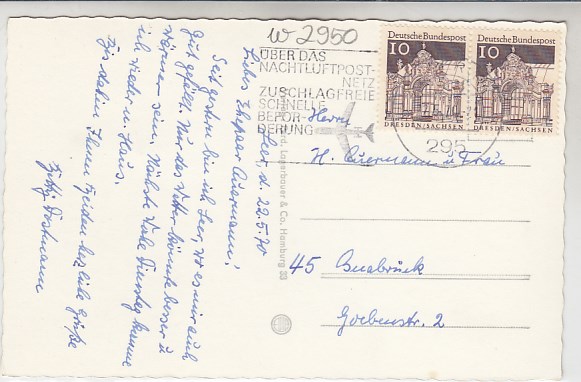 W 2950
Deutsche Bundespost
10
DRESDEN/SACHSEN
Deutsche Bundespost
10
DRESDEN/SACHSEN
ÜBER DAS
NACHTLUFTPOST-
NETZ
ZUSCHLAGFREIE
SCHNELLE
BEFÖR-
DERUNG
295
Leer, d. 22.5.70
Liebes Ehepaar Quermann!
Seit gestern bin ich Leer, wo es mir auch
gut gefällt. Nur das Wetter könnte besser u
wärmer sein. Nächste Woche Dienstag komme
ich wieder n. Haus.
Bis dahin Ihnen beiden herzliche Grüße
Lagerbauer & Co. Hamburg 33
Herrn
H. Quermann u. Frau
45 Osnabrück
Goebenstr. 2